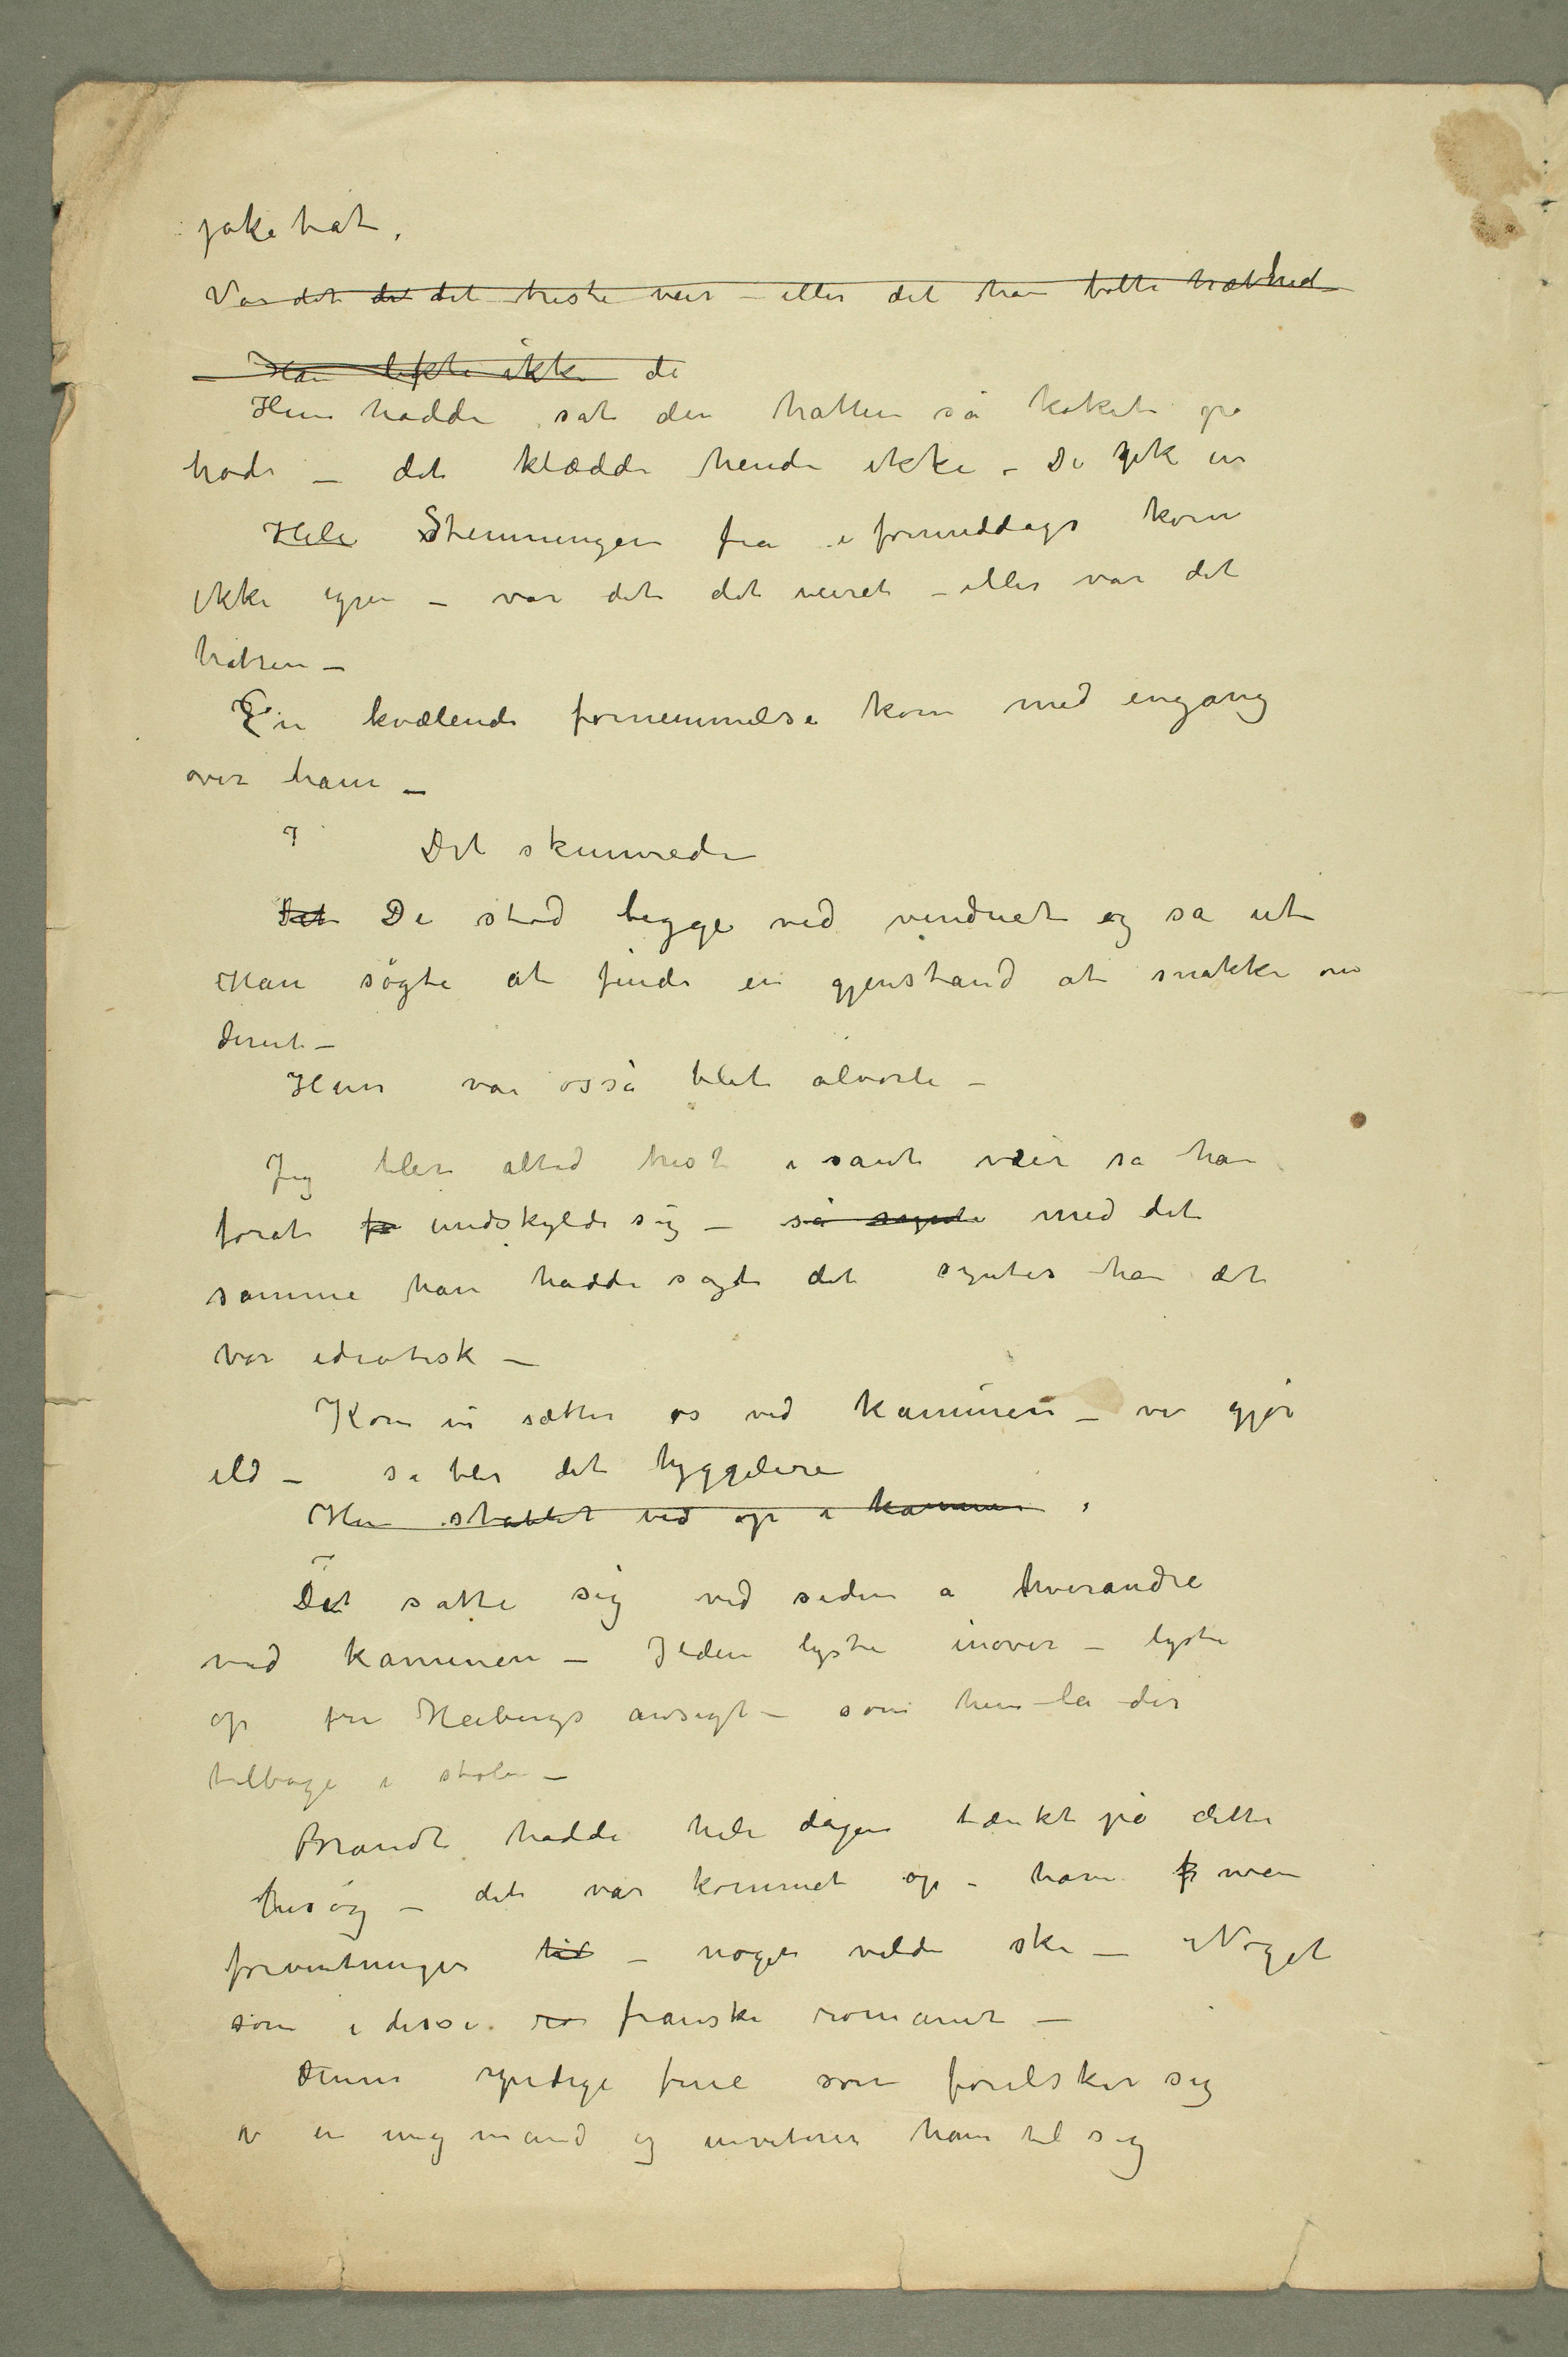 jokehat.
Var det det det triste veir – eller det han følte træthed
Han likte ikke de
Hun hadde sat den hatten så koket på
hode – det klædde hende ikke – De gik in
Hele Stemningen fra i formiddags kom
ikke igjen – var det det veiret – eller var det
hatten –
En kvælende fornemmelse kom med engang
over ham –
I Det skumrede
Det De stod begge ved vinduet og så ut
Han søgte at finde en gjenstand at snakke om
derut –
Hun var osså blet alvorle –
Jeg bler altid trist i sånt veir sa han
forat undskylde sig – så synte med det
samme han hadde sagt det syntes han det
var idiotisk –
Kom vi sætter os ved kaminen – vi gjør
ild – så bler det hyggelere
Hun stablet ved op i kaminen
Det satte sig ved siden a hverandre
ved kaminen – Ilden lyste inover – lyste
op fru Heibergs ansigt – som hun la der
tilbage i stolen –
Brandt hadde hele dagen tænkt på dette
besøg – det var kommet op i ham men
forventninger til – noget vilde ske – Noget
som i disse ro franske romaner –
Denne syndige frue som forelsker sig
i en ung mand og inviterer ham til sig